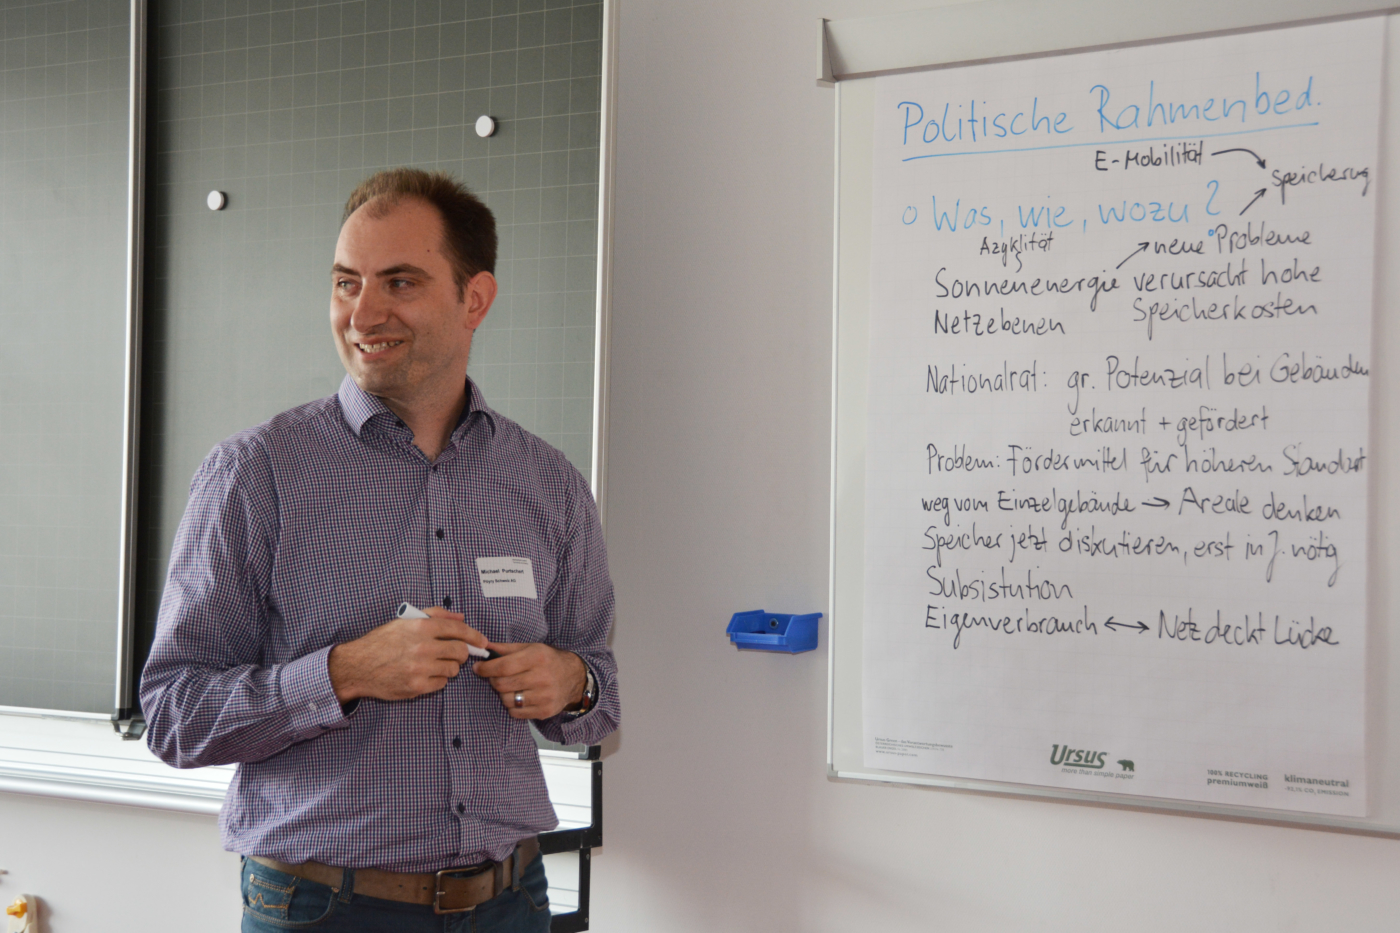 Politische Rahmenbed.
E-Mobilität
Speicherung
o Was, wie, wozu?
Azyklität
neue Probleme
Sonnenenergie verursacht hohe
Netzebenen Speicherkosten
Nationalrat: gr. Potenzial bei Gebäuden
erkannt + gefördert
Problem: Fördermittel für höheren Standart
weg vom Einzelgebäude → Areale denken
Speicher jetzt diskutieren, erst in J. nötig
Subsistution
Eigenverbrauch ↔ Netz deckt Lücke
Michael
Ursus
more than simple paper
100% RECYCLING
premiumweiß
klimaneutral